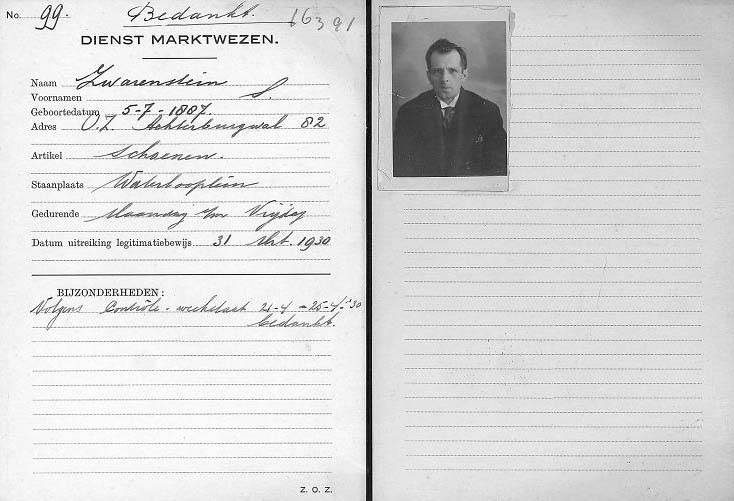 No. 99. Bedankt. 16391
DIENST MARKTWEZEN.
Naam Zwarenstein
Voornamen S.
Geboortedatum 5-7-1887.
Adres O.Z. Achterburgwal 82
Artikel Schoenen.
Staanplaats Waterlooplein
Gedurende Maandag t/m Vrijdag
Datum uitreiking legitimatiebewijs 31 Mrt. 1930
BIJZONDERHEDEN:
Volgens Contrôle-weekstaat 21-4-25-4-'30
bedankt.
Z. O. Z.